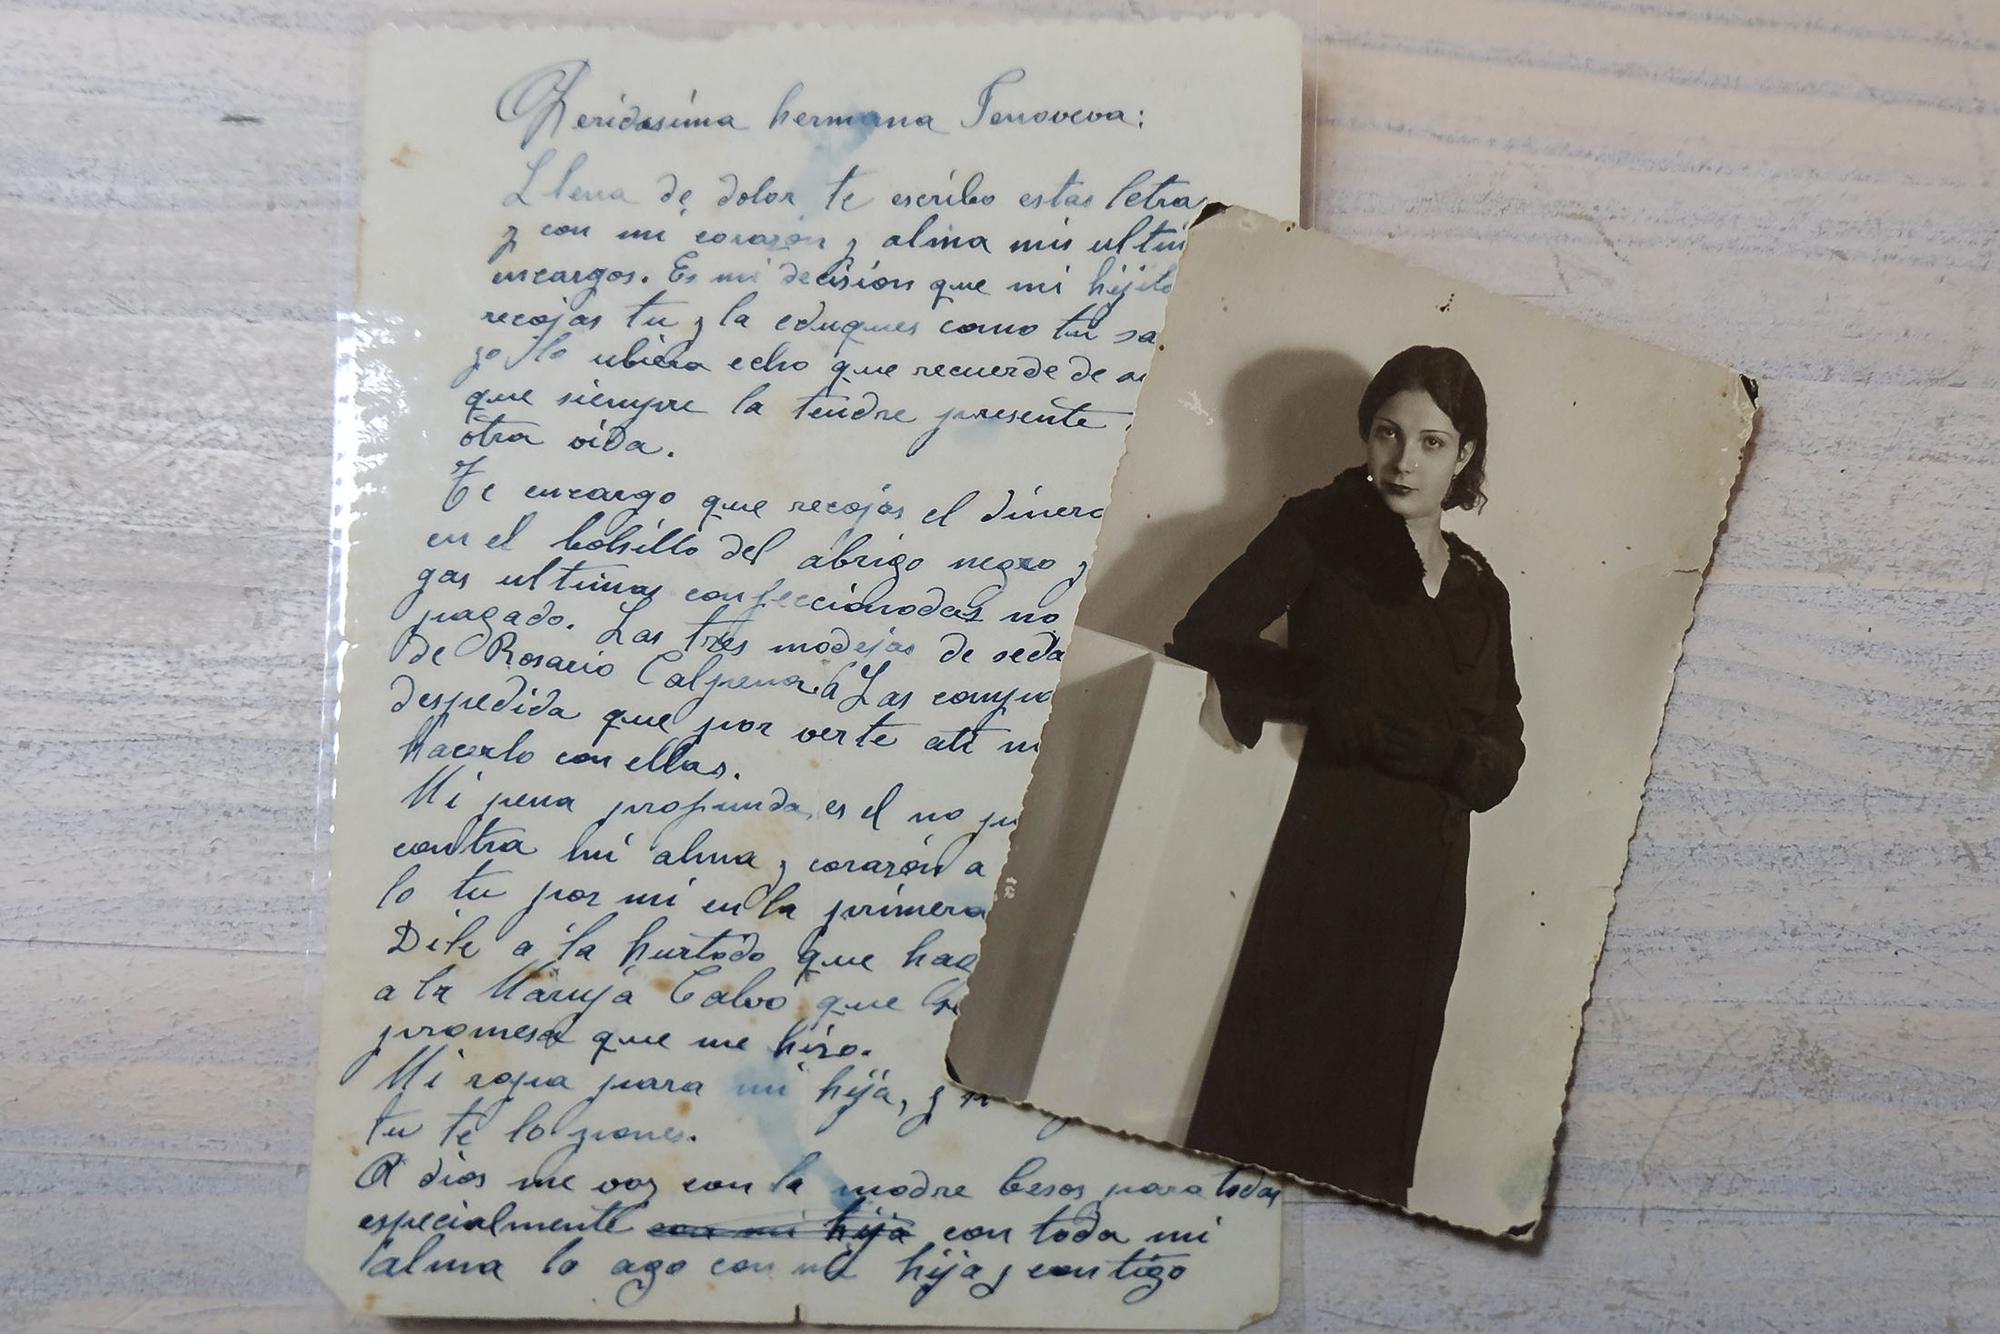 Qeridasima hermana Genoveva:
Llena de dolor te escribo estas letra
y con mi corazon y alma mis ultim
encargos. Es mi decision que mi hijita
recojas tu y la eduques como tu sa
yo lo ubiera echo que recuerde de
que siempre la tendre presente
otra vida.
Te encargo que recojas el dinero
en el bolsillo del abrigo negro y
gas ultimas confeccionadas no
pagado. Las tres madejas de seda
de Rosario Calpena. Las compa
despedida que por verte ati
hacerlo con ellas.
Mi pena profunda es el no pu
contra mi alma y corazón a
lo tu por mi en la primera
Dile a la hurtado que hag
a la Maruja Calvo que
promesa que me hizo.
Mi ropa para mi hija, y
tu te lo pones.
A dios me voy con la madre besos para todas
especialmente con mi hija con toda mi
alma lo ago con mi hija y contigo